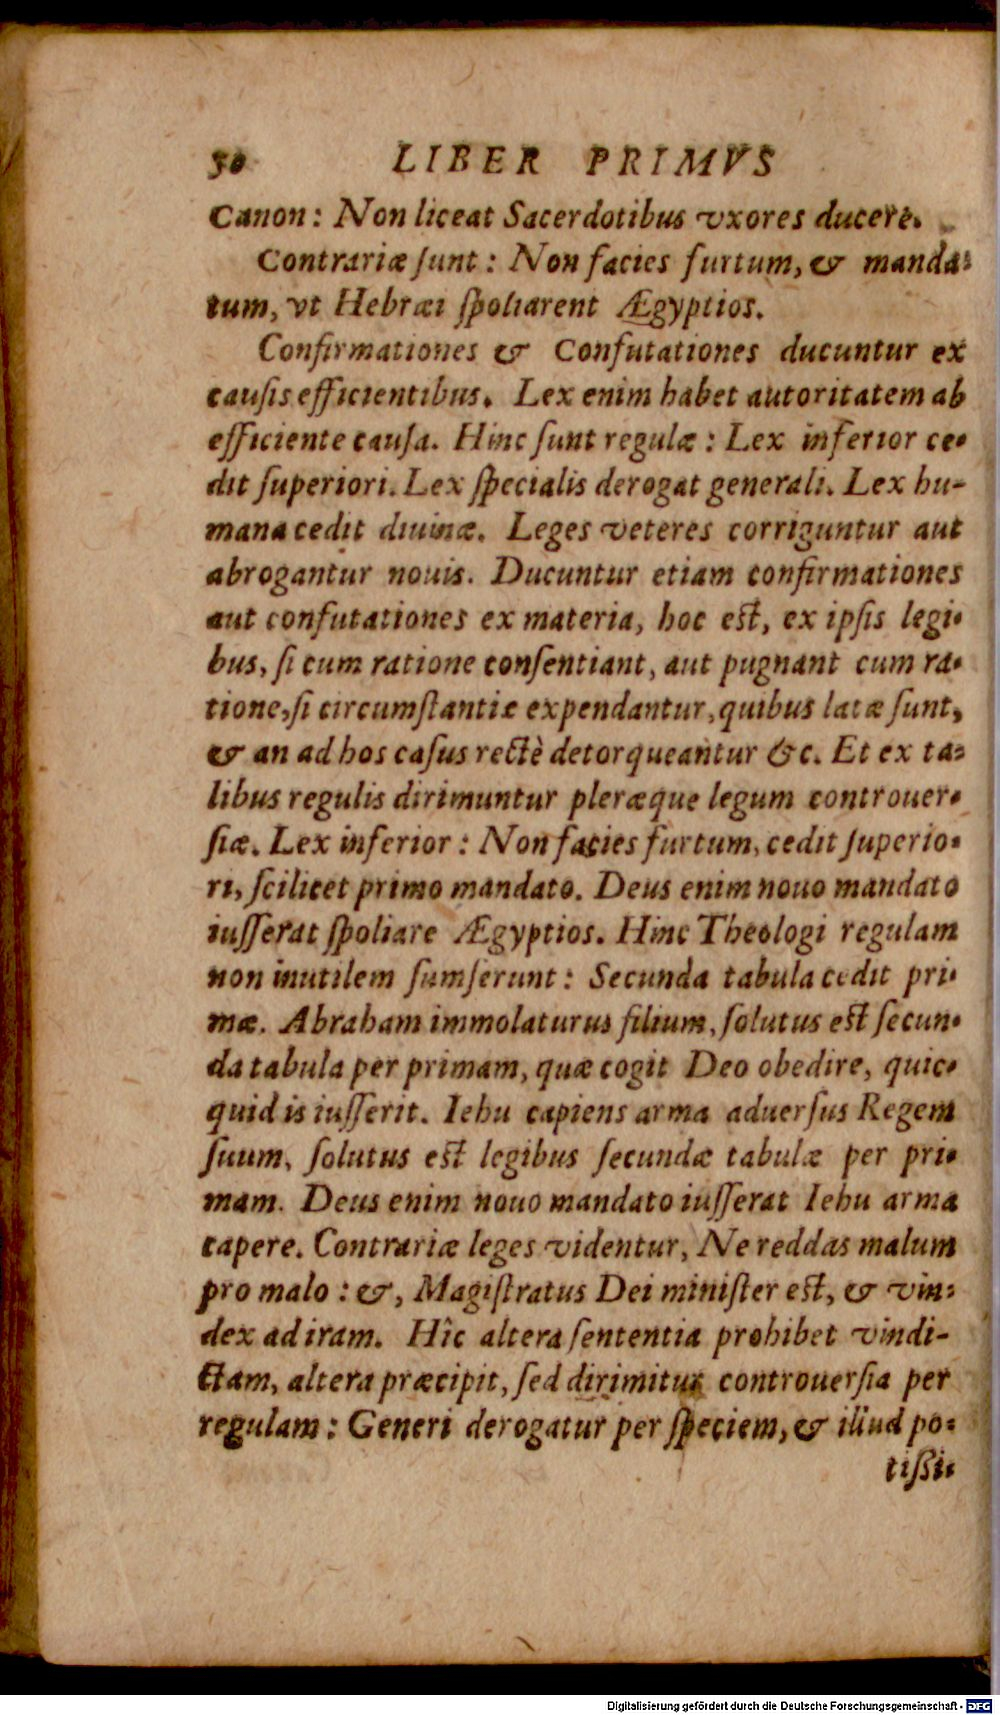 50 LIBER PRIMVS
Canon: Non liceat Sacerdotibus vxores ducere.
Contrariæ sunt: Non facies furtum, & manda-
tum, vt Hebræi spoliarent Ægyptios.
Confirmationes & Confutationes ducuntur ex
causis efficientibus. Lex enim habet autoritatem ab
efficiente causa. Hinc sunt regulæ: Lex inferior ce-
dit superiori. Lex specialis derogat generali. Lex hu-
mana cedit diuinæ. Leges veteres corriguntur aut
abrogantur nouis. Ducuntur etiam confirmationes
aut confutationes ex materia, hoc est, ex ipsis legi-
bus, si cum ratione consentiant, aut pugnant cum ra-
tione, si circumstantiæ expendantur, quibus latæ sunt,
& an ad hos casus rectè detorqueantur &c. Et ex ta-
libus regulis dirimuntur pleræque legum controuer-
siæ. Lex inferior: Non facies furtum, cedit superio-
ri, scilicet primo mandato. Deus enim nouo mandato
iusserat spoliare Ægyptios. Hinc Theologi regulam
non inutilem sumserunt: Secunda tabula cedit pri-
mæ. Abraham immolaturus filium, solutus est secun-
da tabula per primam, quæ cogit Deo obedire, quic-
quid is iusserit. Iehu capiens arma aduersus Regem
suum, solutus est legibus secundæ tabulæ per pri-
mam. Deus enim nouo mandato iusserat Iehu arma
capere. Contrariæ leges videntur, Ne reddas malum
pro malo: &, Magistratus Dei minister est, & vin-
dex ad iram. Hîc altera sententia prohibet vindi-
ctam, altera præcipit, sed dirimitur controuersia per
regulam: Generi derogatur per speciem, & illud po-
tißi-
Digitalisierung gefördert durch die Deutsche Forschungsgemeinschaft - DFG